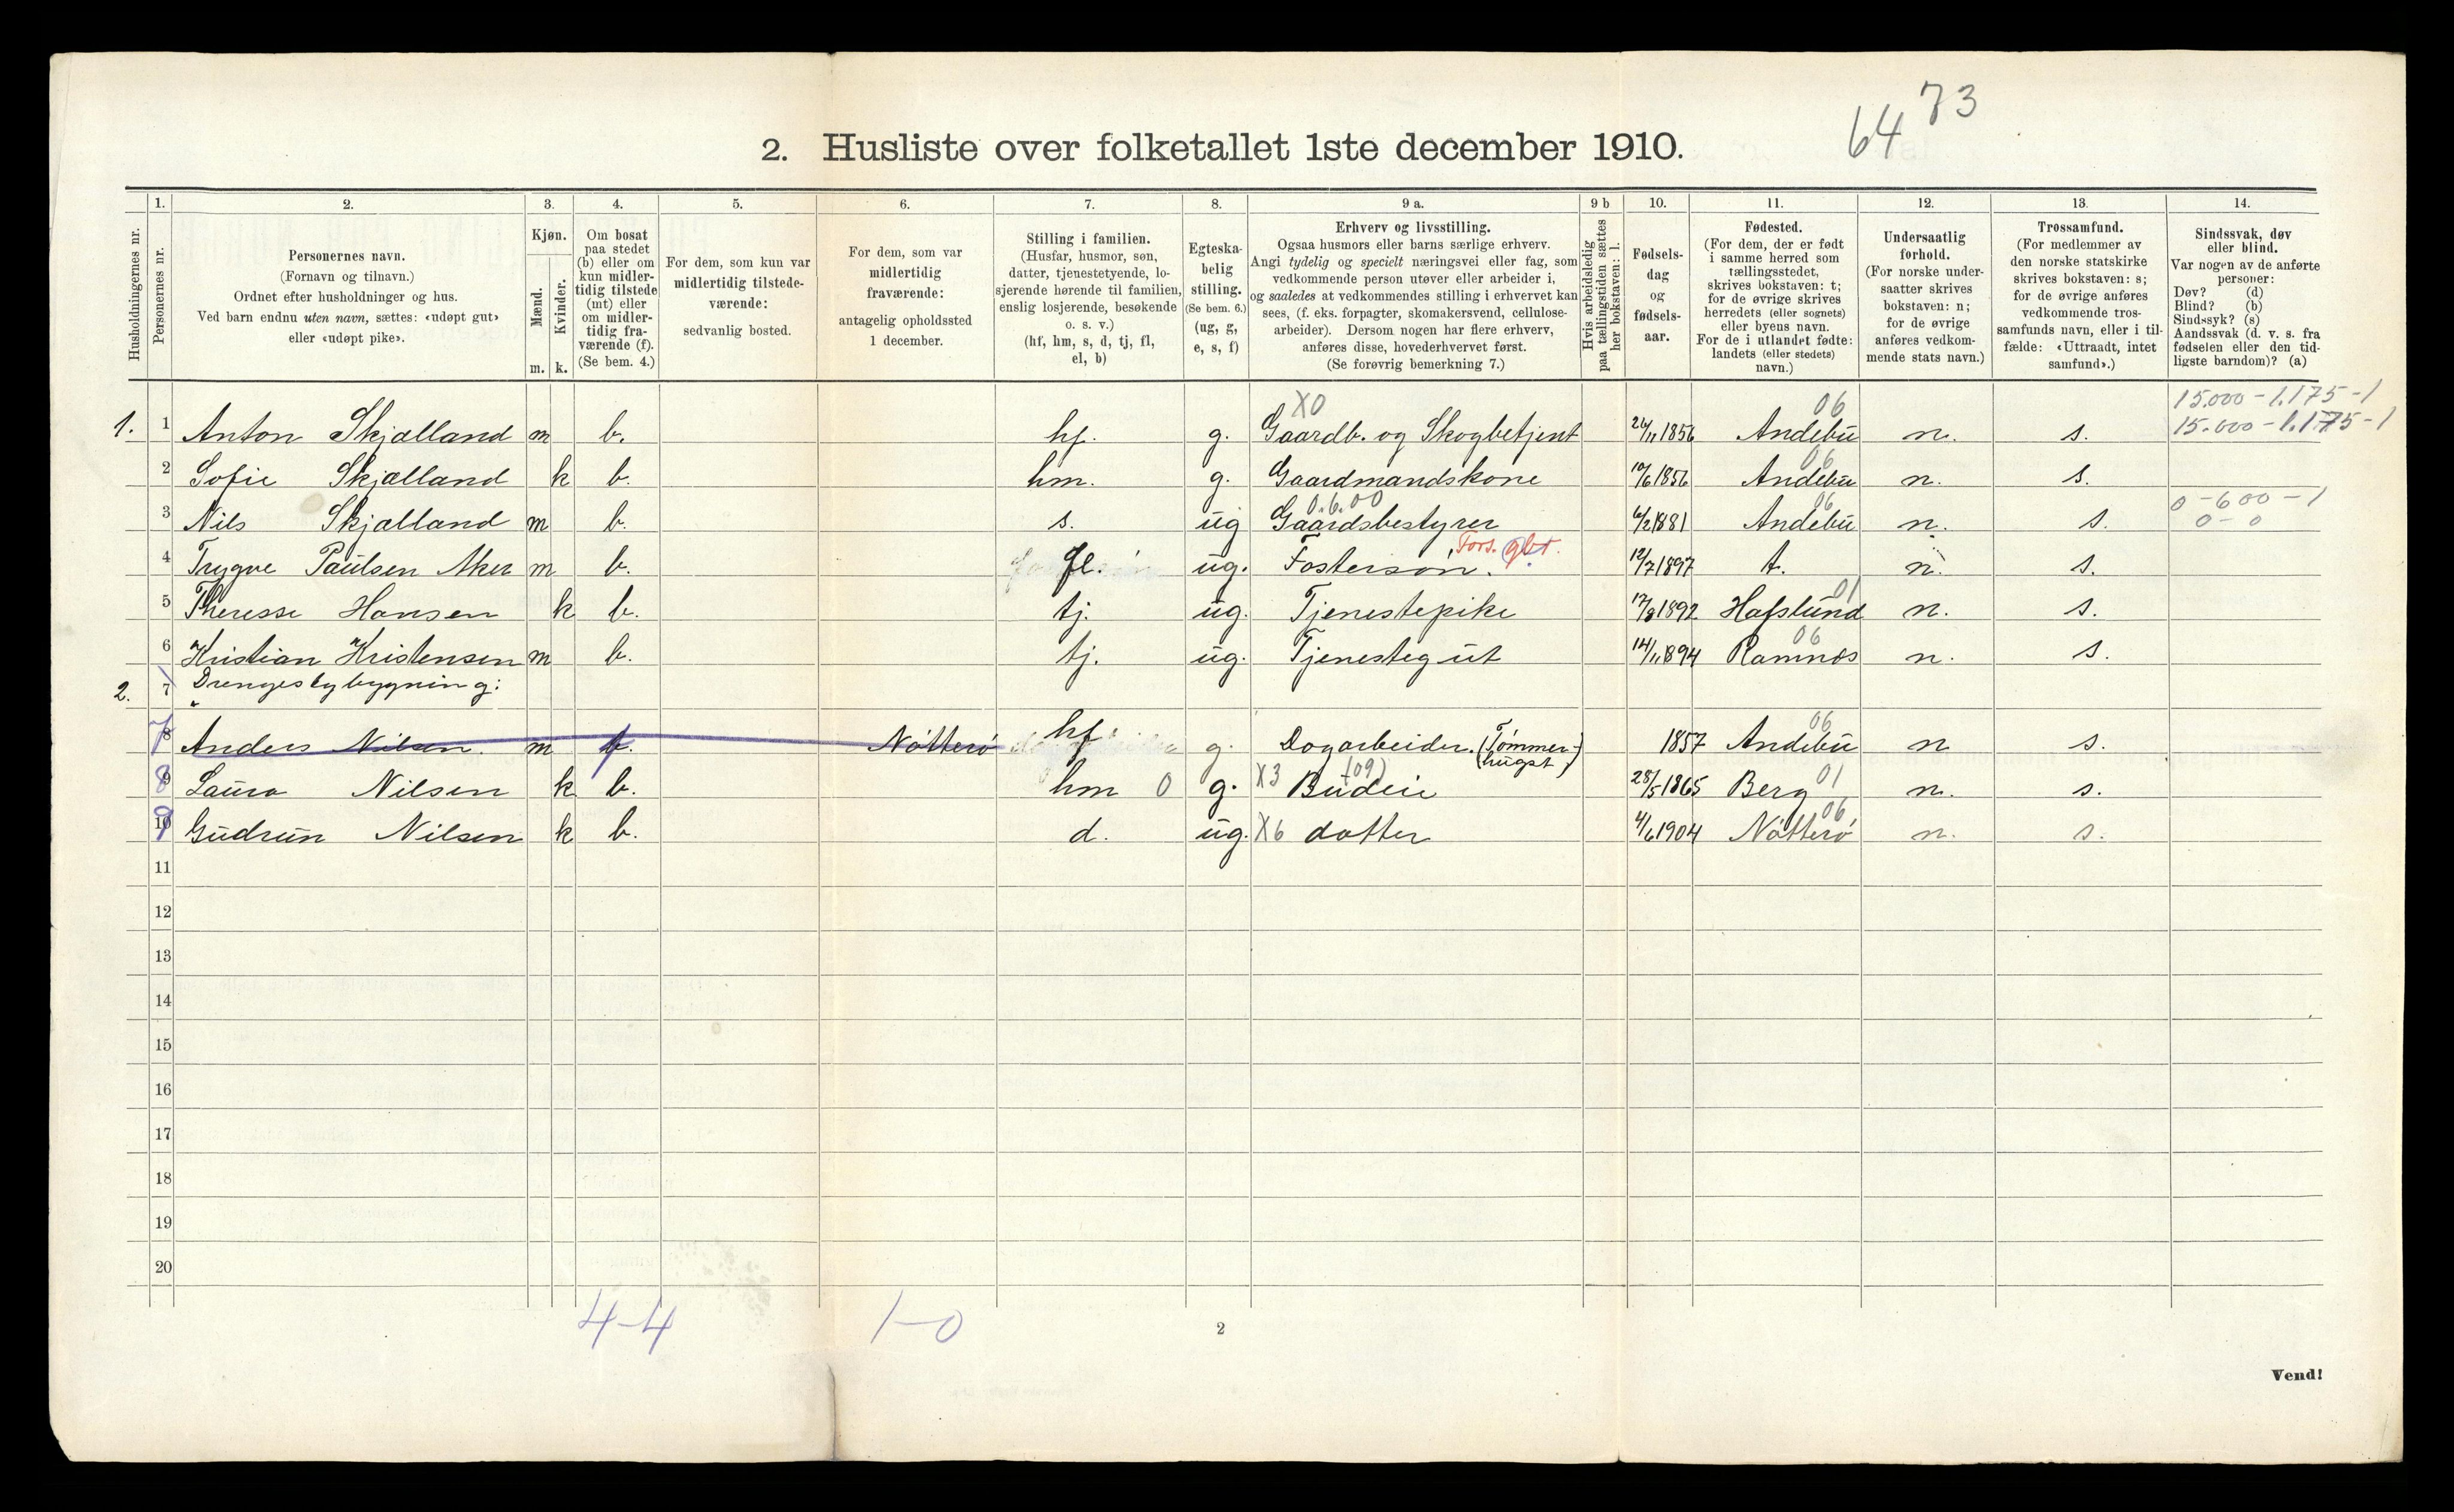 64 73
2. Husliste over folketallet 1ste december 1910.
Husholdningernes nr.
1.
Personernes nr.
2.
Personernes navn.
(Fornavn og tilnavn.)
Ordnet efter husholdninger og hus.
Ved barn endnu uten navn, sættes: «udøpt gut»
eller «udøpt pike».
3.
Kjøn.
Mænd.
Kvinder.
m. k.
4.
Om bosat
paa stedet
(b) eller om
kun midler-
tidig tilstede
(mt) eller
om midler-
tidig fra-
værende (f).
(Se bem. 4.)
5.
For dem, som kun var
midlertidig tilstede-
værende:
sedvanlig bosted.
6.
For dem, som var
midlertidig
fraværende:
antagelig opholdssted
1 december.
7.
Stilling i familien.
(Husfar, husmor, søn,
datter, tjenestetyende, lo-
sjerende hørende til familien,
enslig losjerende, besøkende
o. s. v.)
(hf, hm, s, d, tj, fl,
el, b)
8.
Egteska-
belig
stilling.
(Se bem. 6.)
(ug, g,
e, s, f)
9 a.
Erhverv og livsstilling.
Ogsaa husmors eller barns særlige erhverv.
Angi tydelig og specielt næringsvei eller fag, som
vedkommende person utøver eller arbeider i,
og saaledes at vedkommendes stilling i erhvervet kan
sees, (f. eks. forpagter, skomakersvend, cellulose-
arbeider). Dersom nogen har flere erhverv,
anføres disse, hovederhvervet først.
(Se forøvrig bemerkning 7.)
9 b
Hvis arbeidsledig
paa tællingstiden sættes
her bokstaven: l.
10.
Fødsels-
dag
og
fødsels-
aar.
11.
Fødested.
(For dem, der er født
i samme herred som
tællingsstedet,
skrives bokstaven: t;
for de øvrige skrives
herredets (eller sognets)
eller byens navn.
For de i utlandet fødte:
landets (eller stedets)
navn.)
12.
Undersaatlig
forhold.
(For norske under-
saatter skrives
bokstaven: n;
for de øvrige
anføres vedkom-
mende stats navn.)
13.
Trossamfund.
(For medlemmer av
den norske statskirke
skrives bokstaven: s;
for de øvrige anføres
vedkommende tros-
samfunds navn, eller i til-
fælde: «Uttraadt, intet
samfund».)
14.
Sindssvak, døv
eller blind.
Var nogen av de anførte
personer:
Døv? (d)
Blind? (b)
Sindssyk? (s)
Aandssvak (d. v. s. fra
fødselen eller den tid-
ligste barndom)? (a)
X0 06 15.000 - 1.175 - 1
1. 1 Anton Skjælland m b. hf. g. Gaardb. og Skogbetjent 26/11 1856 Andebu n. s. 15.000 - 1.175 - 1
06
2 Sofie Skjælland k b. hm. g. Gaardmandskone 10/6 1856 Andebu n. s.
0.6.00 06 0 - 600 - 1
3 Nils Skjælland m b. s. ug Gaardsbestyrer 6/2 1881 Andebu n. s. 0 - 0
Fors. gbr.
4 Trygve Paulsen Aker m b. fl. ug. Fosterson. 12/7 1897 t. n. s.
01
5 Theresse Hansen k b. tj. ug. Tjenestepike 17/8 1892 Hafslund n. s.
06
6 Kristian Kristensen m b. tj. ug. Tjenestegut 14/11 1894 Ramnes n. s.
2. 7 Drengestybygning:
06
7 8 Anders Nilsen. m f. Nøtterø hf. g. Dagarbeider. (Tømmer-
hugst) 1857 Andebu n s.
(09) 01
8 9 Laura Nilsen k b. hm 0 g. X3 Budeie 28/5 1865 Berg n. s.
06
9 10 Gudrun Nilsen k b. d. ug. X6 datter 4/6 1904 Nøtterø n. s.
11
12
13
14
15
16
17
18
19
20
4-4 1-0
2
Vend!